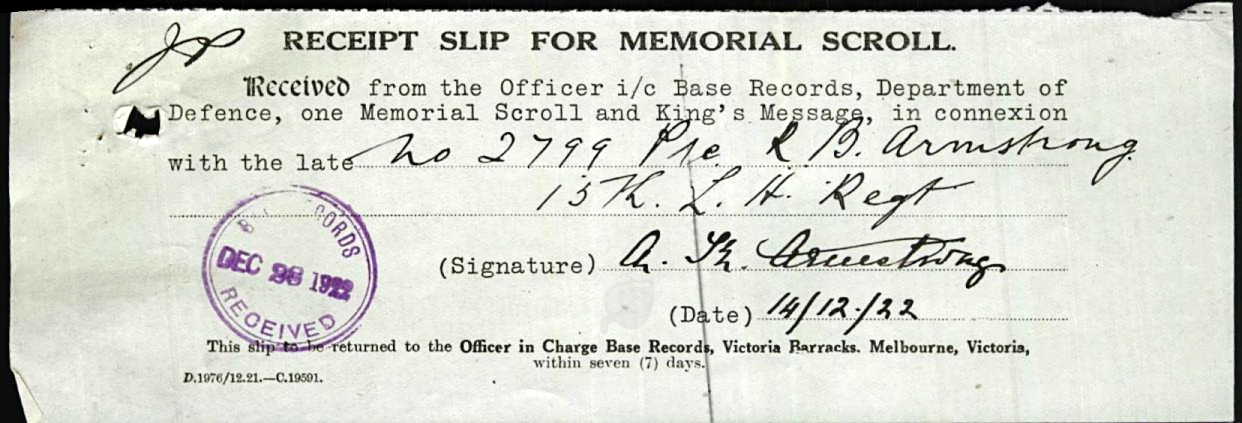 RECEIPT SLIP FOR MEMORIAL SCROLL.
Received from the Officer i/c Base Records, Department of
Defence, one Memorial Scroll and King's Message, in connexion
with the late No 2799 Pte R B. Armstrong
15th. L. H. Regt
RECORDS
DEC 1922
RECEIVED
(Signature) Armstrong
(Date) 14/12/22
This slip to be returned to the Officer in Charge Base Records, Victoria Barracks. Melbourne, Victoria,
within seven (7) days.
D.1976/12.21.—C.19591.